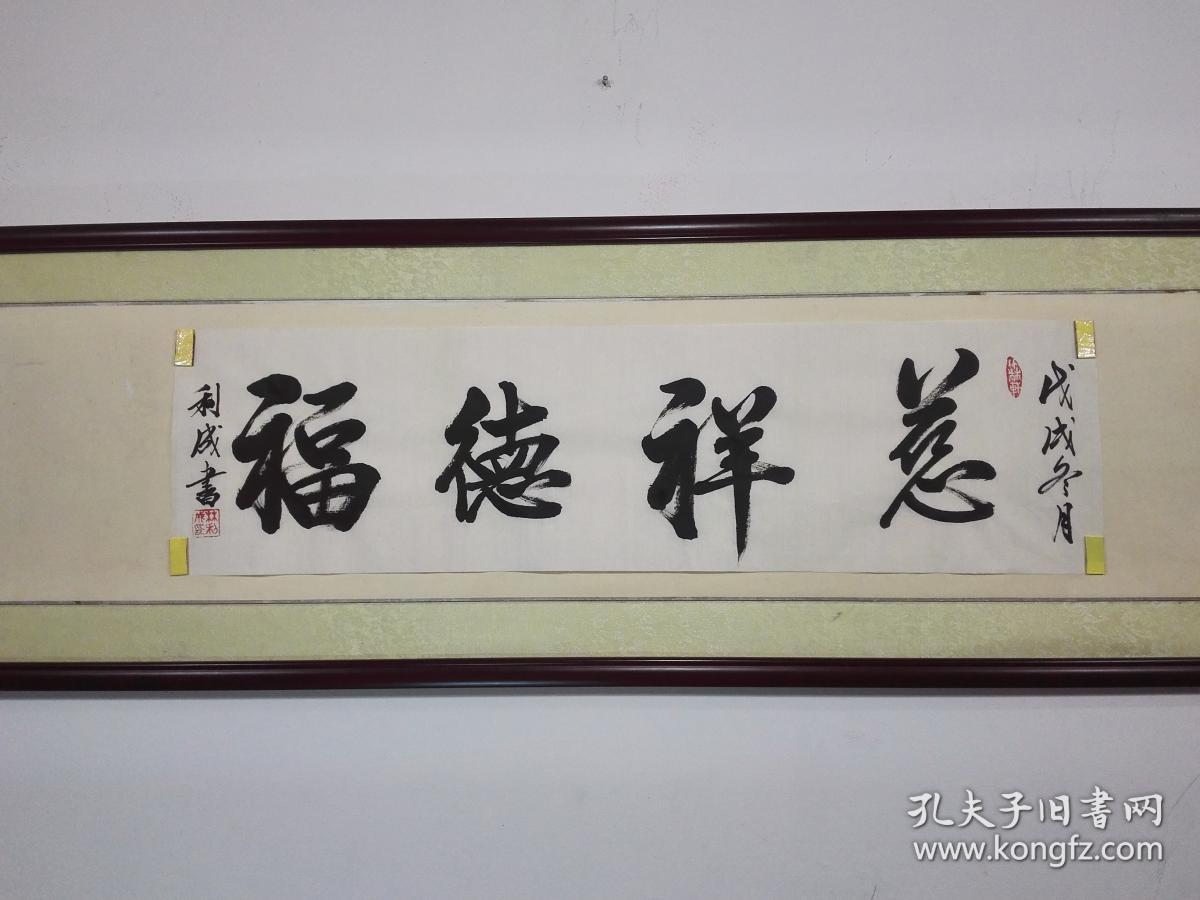 戊戌冬月
慈祥德福
利成書
孔夫子旧书网
www.kongfz.com